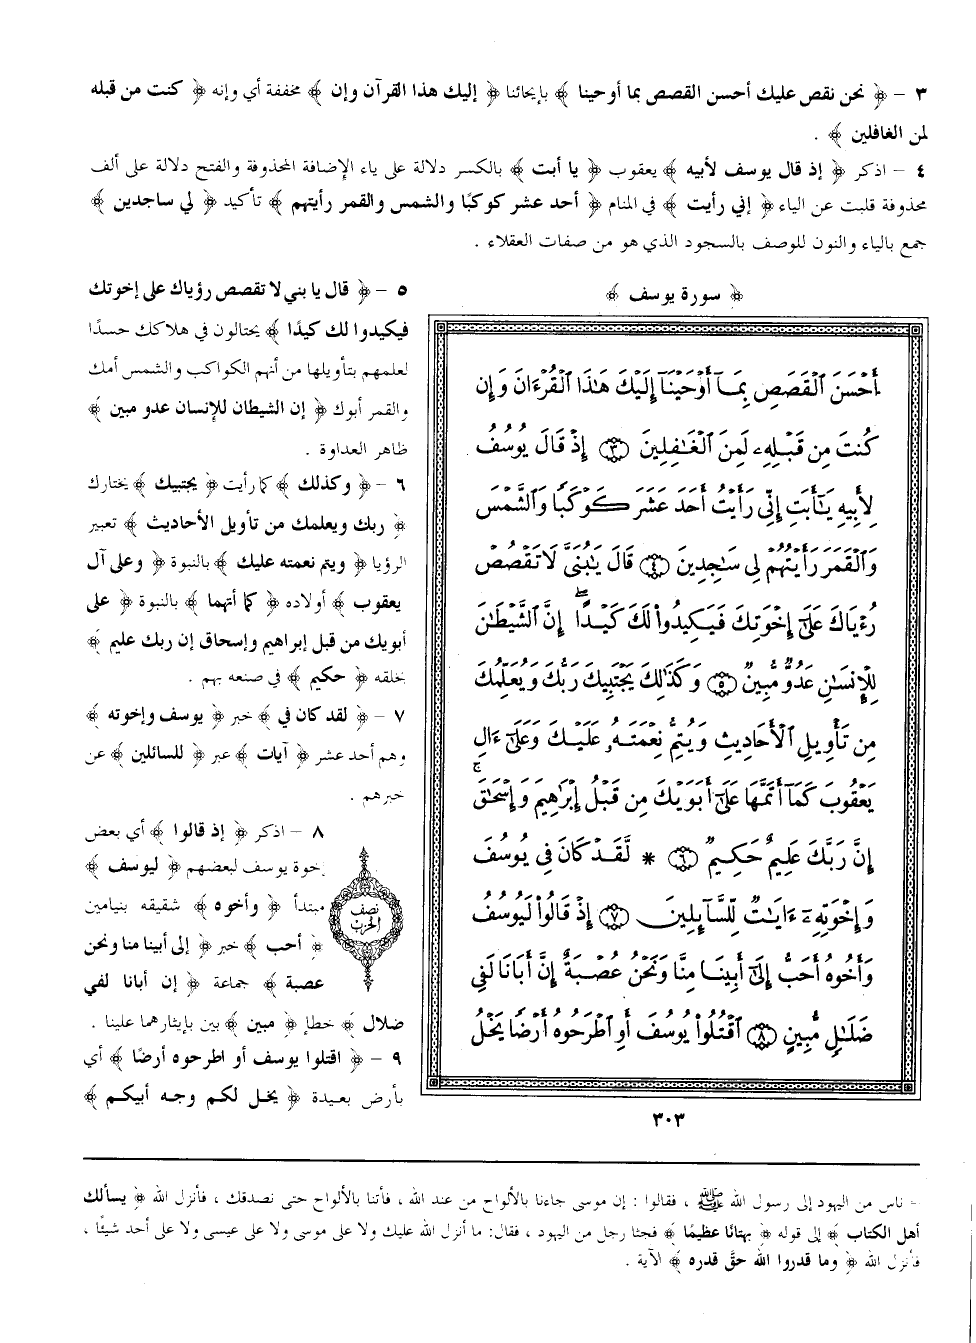 ٣ - ﴿ نحن نقص عليك أحسن القصص بما أوحينا ﴾ بإيحائنا ﴿ إليك هذا القرآن وإن ﴾ مخففة أي وإنه ﴿ كنت من قبله
لمن الغافلين ﴾ .
٤ - اذكر ﴿ إذ قال يوسف لأبيه ﴾ يعقوب ﴿ يا أبت ﴾ بالكسر دلالة على ياء الإضافة المحذوفة والفتح دلالة على ألف
محذوفة قلبت عن الياء ﴿ إني رأيت ﴾ في المنام ﴿ أحد عشر كوكبًا والشمس والقمر رأيتهم ﴾ تأكيد ﴿ لي ساجدين ﴾
جمع بالياء والنون للوصف بالسجود الذي هو من صفات العقلاء .
﴿ سورة يوسف ﴾
أَحْسَنَ ٱلْقَصَصِ بِمَآ أَوْحَيْنَآ إِلَيْكَ هَٰذَا ٱلْقُرْءَانَ وَإِن
كُنتَ مِن قَبْلِهِۦ لَمِنَ ٱلْغَٰفِلِينَ ٣ إِذْ قَالَ يُوسُفُ
لِأَبِيهِ يَٰٓأَبَتِ إِنِّى رَأَيْتُ أَحَدَ عَشَرَ كَوْكَبًا وَٱلشَّمْسَ
وَٱلْقَمَرَ رَأَيْتُهُمْ لِى سَٰجِدِينَ ٤ قَالَ يَٰبُنَىَّ لَا تَقْصُصْ
رُءْيَاكَ عَلَىٰٓ إِخْوَتِكَ فَيَكِيدُوا۟ لَكَ كَيْدًا ۖ إِنَّ ٱلشَّيْطَٰنَ
لِلْإِنسَٰنِ عَدُوٌّ مُّبِينٌ ٥ وَكَذَٰلِكَ يَجْتَبِيكَ رَبُّكَ وَيُعَلِّمُكَ
مِن تَأْوِيلِ ٱلْأَحَادِيثِ وَيُتِمُّ نِعْمَتَهُۥ عَلَيْكَ وَعَلَىٰٓ ءَالِ
يَعْقُوبَ كَمَآ أَتَمَّهَا عَلَىٰٓ أَبَوَيْكَ مِن قَبْلُ إِبْرَٰهِيمَ وَإِسْحَٰقَ ۚ
إِنَّ رَبَّكَ عَلِيمٌ حَكِيمٌ ٦ * لَّقَدْ كَانَ فِى يُوسُفَ
وَإِخْوَتِهِۦٓ ءَايَٰتٌ لِّلسَّآئِلِينَ ٧ إِذْ قَالُوا۟ لَيُوسُفُ
وَأَخُوهُ أَحَبُّ إِلَىٰٓ أَبِينَا مِنَّا وَنَحْنُ عُصْبَةٌ إِنَّ أَبَانَا لَفِى
ضَلَٰلٍ مُّبِينٍ ٨ ٱقْتُلُوا۟ يُوسُفَ أَوِ ٱطْرَحُوهُ أَرْضًا يَخْلُ
٥ - ﴿ قال يا بني لا تقصص رؤياك على إخوتك
فيكيدوا لك كيدًا ﴾ يحتالون في هلاكك حسدًا
لعلمهم بتأويلها من أنهم الكواكب والشمس أمك
والقمر أبوك ﴿ إن الشيطان للإنسان عدو مبين ﴾
ظاهر العداوة .
٦ - ﴿ وكذلك ﴾ كما رأيت ﴿ يجتبيك ﴾ يختارك
﴿ ربك ويعلمك من تأويل الأحاديث ﴾ تعبير
الرؤيا ﴿ ويتم نعمته عليك ﴾ بالنبوة ﴿ وعلى آل
يعقوب ﴾ أولاده ﴿ كما أتمها ﴾ بالنبوة ﴿ على
أبويك من قبل إبراهيم وإسحاق إن ربك عليم ﴾
بخلقه ﴿ حكيم ﴾ في صنعه بهم .
٧ - ﴿ لقد كان في ﴾ خبر ﴿ يوسف وإخوته ﴾
وهم أحد عشر ﴿ آيات ﴾ عبر ﴿ للسائلين ﴾ عن
خبرهم .
٨ - اذكر ﴿ إذ قالوا ﴾ أي بعض
إخوة يوسف لبعضهم ﴿ ليوسف ﴾
مبتدأ ﴿ وأخوه ﴾ شقيقه بنيامين
﴿ أحب ﴾ خبر ﴿ إلى أبينا منا ونحن
عصبة ﴾ جماعة ﴿ إن أبانا لفي
ضلال ﴾ خطإ ﴿ مبين ﴾ بين بإيثارهما علينا .
٩ - ﴿ اقتلوا يوسف أو اطرحوه أرضًا ﴾ أي
بأرض بعيدة ﴿ يخل لكم وجه أبيكم ﴾
نصف
الحزب
٣٠٣
= ناس من اليهود إلى رسول الله ﷺ ، فقالوا : إن موسى جاءنا بالألواح من عند الله ، فأتنا بالألواح حتى نصدقك ، فأنزل الله ﴿ يسألك
أهل الكتاب ﴾ إلى قوله ﴿ بهتانًا عظيمًا ﴾ فجثا رجل من اليهود ، فقال: ما أنزل الله عليك ولا على موسى ولا على عيسى ولا على أحد شيئًا ،
فأنزل الله ﴿ وما قدروا الله حقَّ قدره ﴾ الآية .